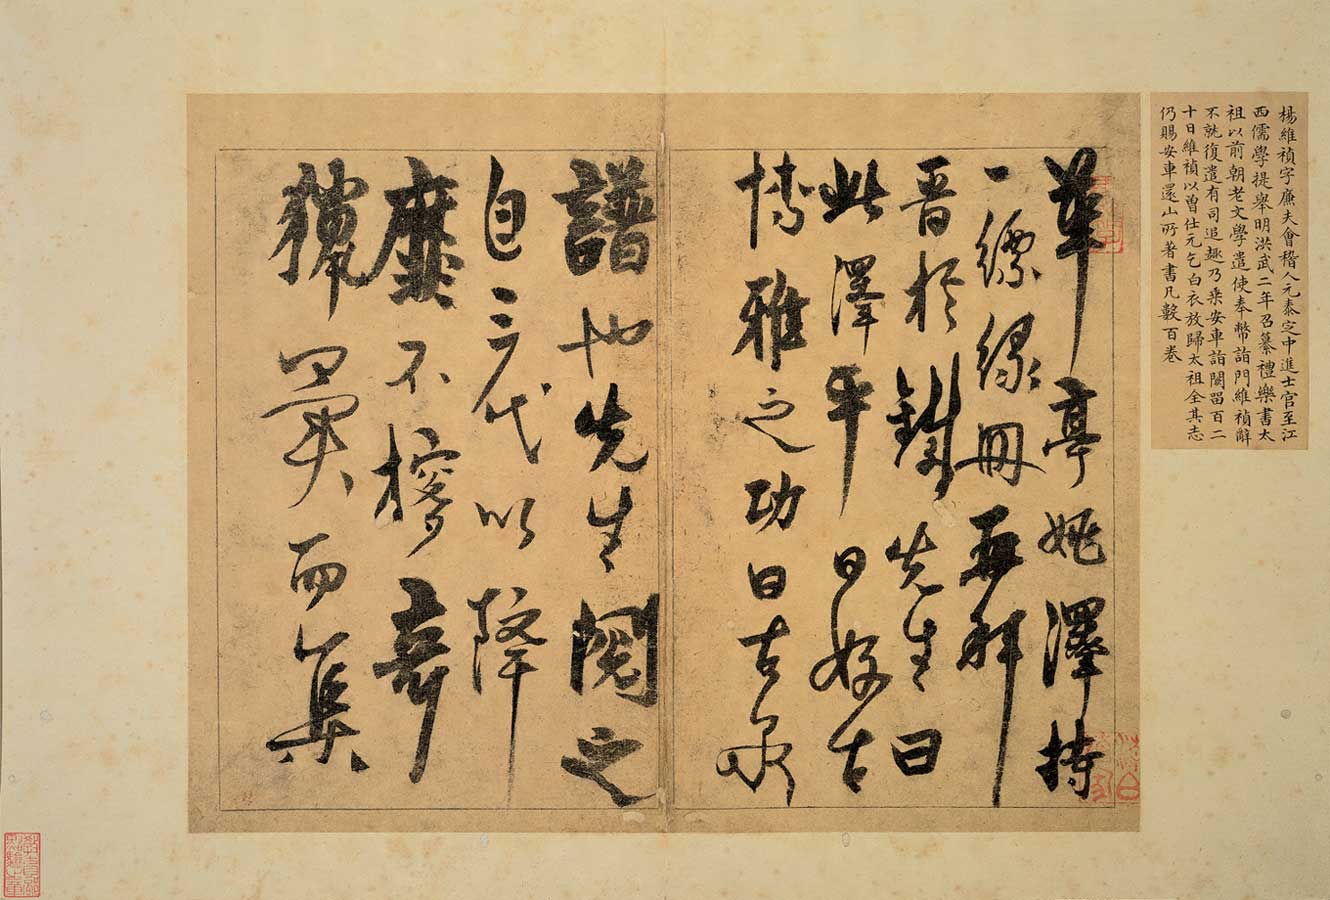 楊維禎字廉夫會稽人元泰定中進士官至江
西儒學提舉明洪武二年召纂禮樂書太
祖以前朝老文學遣使奉幣詣門維禎辭
不就復遣有司追趣乃乘安車詣闕留百二
十日維禎以曾仕元乞白衣放歸太祖全其志
仍賜安車還山所著書凡數百卷
華亭姚澤持
一縹緑冊再拜
晉於鐵先生曰
此澤平日好古
博雅之功曰古泉
譜也先生閱之
自三代以降
靡不
獵彙而集